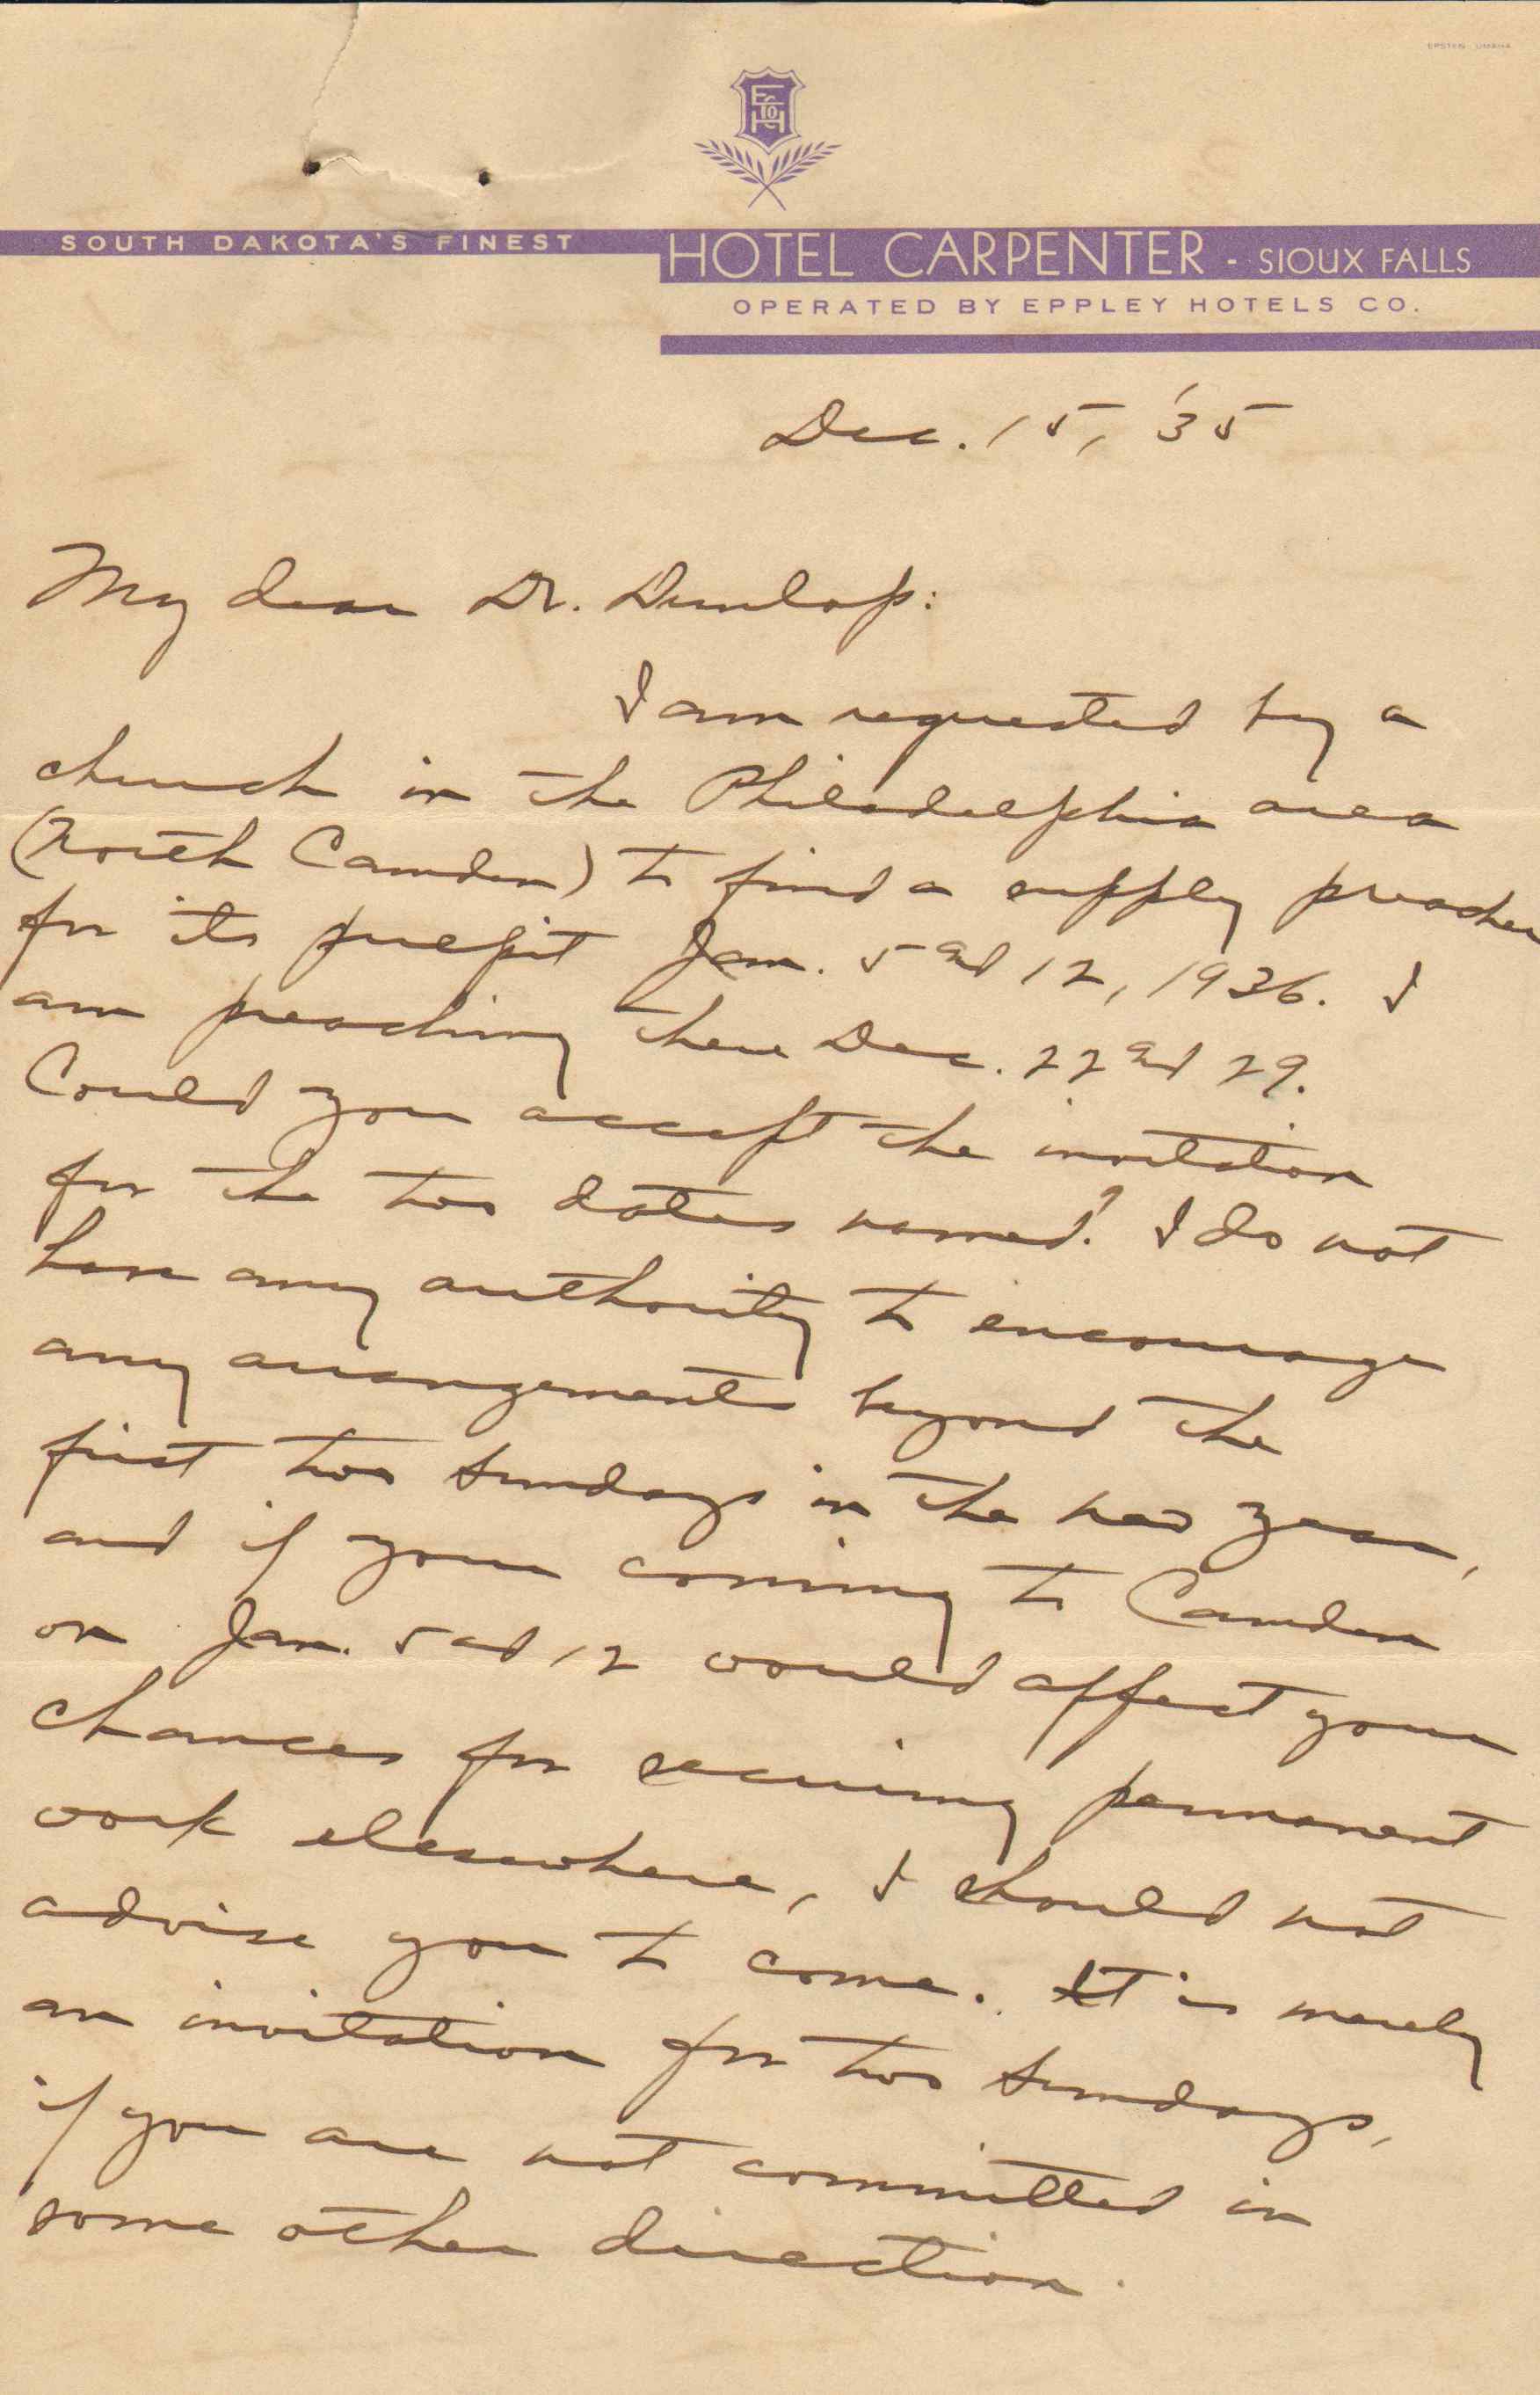 EPSTEN - OMAHA
SOUTH DAKOTA'S FINEST
HOTEL CARPENTER - SIOUX FALLS
OPERATED BY EPPLEY HOTELS CO.
Dec. 15, '35
My dear Dr. Dunlop:
I am requested by a
church in the Philadelphia area
(North Camden) to find a supply preacher
for its pulpit Jan. 5 and 12, 1936. I
am preaching there Dec. 22 and 29.
Could you accept the invitation
for the two dates named? I do not
have any authority to encourage
any arrangements beyond the
first two Sundays in the new year,
and if your coming to Camden
on Jan. 5 and 12 would affect your
chances for securing permanent
work elsewhere, I should not
advise you to come. It is merely
an invitation for two Sundays,
if you are not committed in
some other direction.